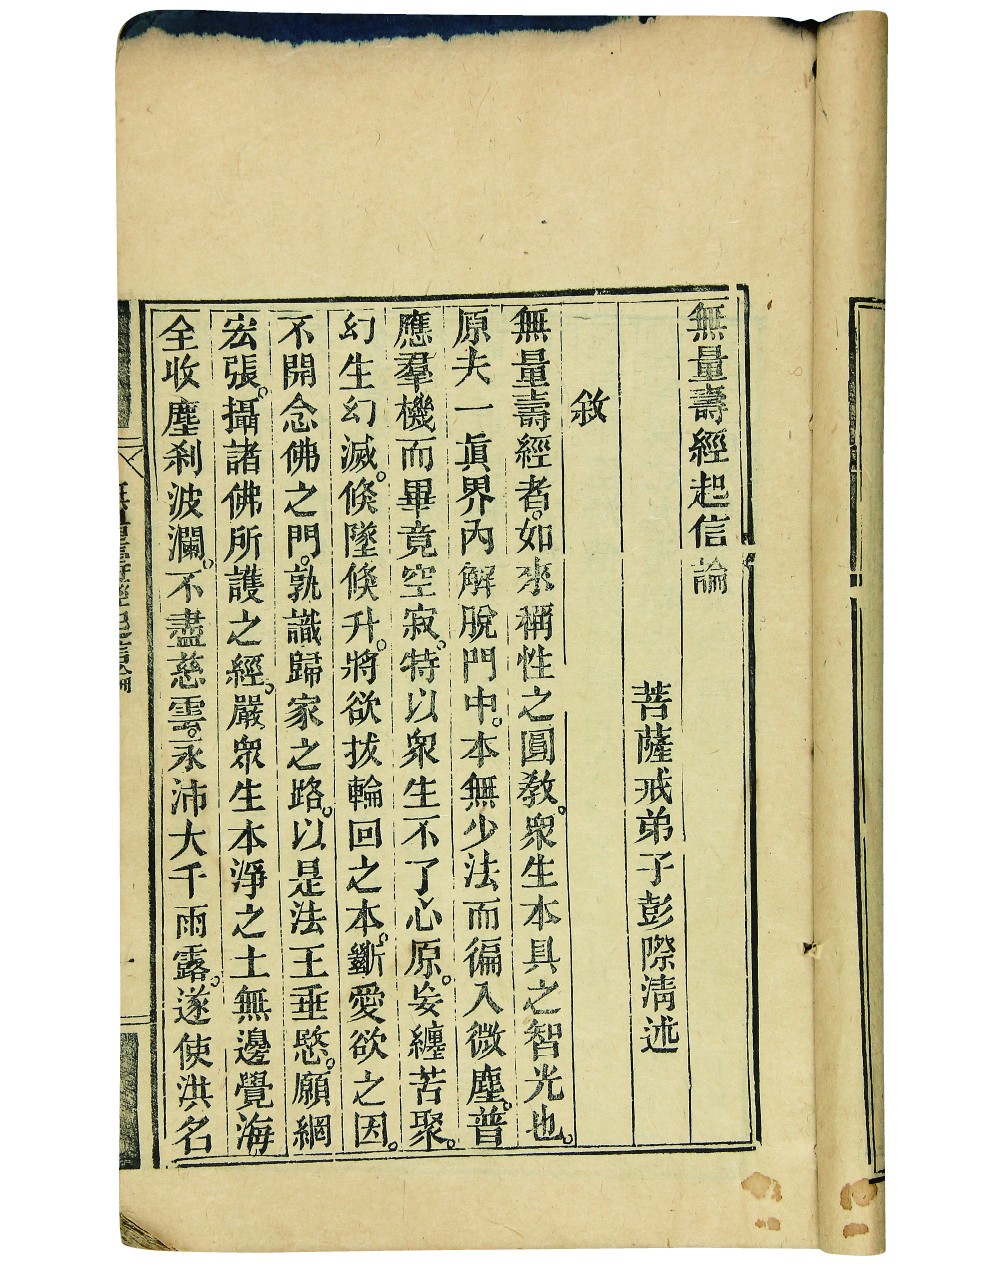 無量壽經起信論
菩薩戒弟子彭際淸述
敘
無量壽經者。如來稱性之圓敎。衆生本具之智光也。
原夫一眞界內解脫門中。本無少法而徧入微塵。普
應羣機而畢竟空寂。特以衆生不了心原。妄纏苦聚。
幻生幻滅。倐墜倐升。將欲拔輪回之本。斷愛欲之因。
不開念佛之門。孰識歸家之路。以是法王垂愍。願網
宏張。攝諸佛所護之經。嚴衆生本淨之土無邊覺海
全收塵刹波瀾。不盡慈雲。永沛大千雨露。遂使洪名